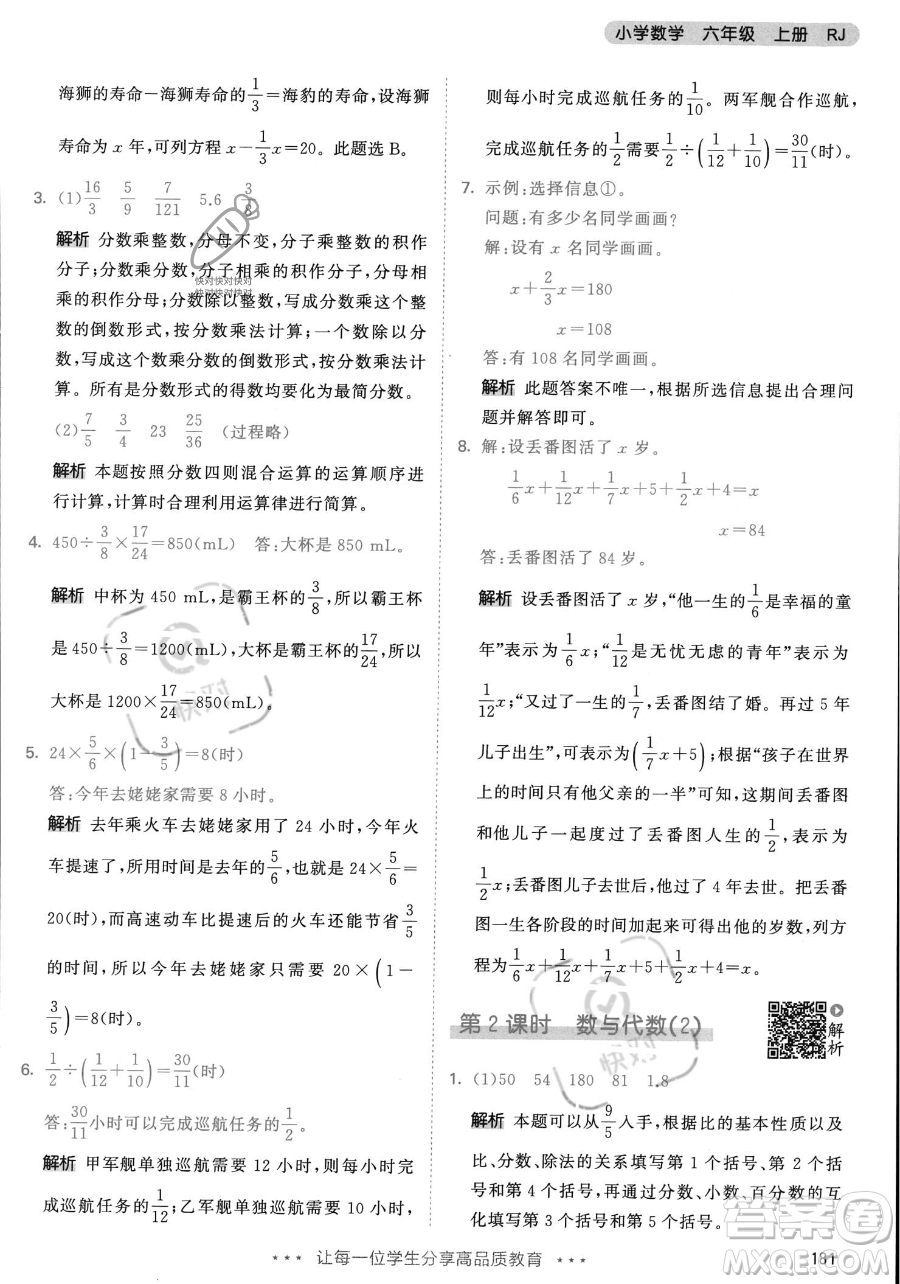 小学数学 六年级 上册 RJ
海狮的寿命－海狮寿命的1/3＝海豹的寿命，设海狮
寿命为 x 年，可列方程 x－1/3x＝20。此题选 B。
3. (1)16/3 5/9 7/121 5.6 3/8
解析 分数乘整数，分母不变，分子乘整数的积作
分子；分数乘分数，分子相乘的积作分子，分母相
乘的积作分母；分数除以整数，写成这个分数乘整
数的倒数形式，按分数乘法计算；一个数除以分
数，写成这个数乘分数的倒数形式，按分数乘法计
算。所有是分数形式的得数均要化为最简分数。
(2)7/5 3/4 23 25/36 (过程略)
解析 本题按照分数四则混合运算的运算顺序进
行计算，计算时合理利用运算律进行简算。
4. 450÷3/8×17/24＝850(mL) 答：大杯是 850 mL。
解析 中杯为 450 mL，是霸王杯的3/8，所以霸王杯
是 450÷3/8＝1200(mL)，大杯是霸王杯的17/24，所以
大杯是 1200×17/24＝850(mL)。
5. 24×5/6×(1－3/5)＝8(时)
答：今年去姥姥家需要 8 小时。
解析 去年乘火车去姥姥家用了 24 小时，今年火
车提速了，所用时间是去年的5/6，就是 24×5/6＝
20(时)，而高速动车比提速的火车还能节省3/5
的时间，所以今年去姥姥家需要 20×(1－
3/5)＝8(时)。
6. 1/2÷(1/12+1/10)＝30/11(时)
答：30/11小时可以完成巡航任务的1/2。
解析 甲军舰单独巡航需要 12 小时，则每小时完
成巡航任务的1/12；乙军舰单独巡航需要 10 小时，
则每小时完成巡航任务的1/10。两军舰合作巡航，
完成巡航任务的1/2需要1/2÷(1/12+1/10)＝30/11(时)。
7. 示例：选择信息①。
问题：有多少名同学画画？
解：设有 x 名同学画画。
x+2/3x＝180
x＝108
答：有 108 名同学画画。
解析 此题答案不唯一，根据所选信息提出合理问
题并解答即可。
8. 解：设丢番图活了 x 岁。
1/6x+1/12x+1/7x+5+1/2x+4＝x
x＝84
答：丢番图活了 84 岁。
解析 设丢番图活了 x 岁，“他一生的1/6是幸福的童
年”表示为1/6x；“1/12是无忧无虑的青年”表示为
1/12x；“又过了一生的1/7，丢番图结了婚。再过 5 年
儿子出生”，可表示为(1/7x+5)；根据“孩子在世界
上的时间只有他父亲的一半”可知，这期间丢番图
和他儿子一起度过了丢番图人生的1/2，表示为
1/2x；丢番图儿子去世后，他又活了 4 年去世。丢番
图一生各阶段的时间加起来就是他的岁数，列方
程为1/6x+1/12x+1/7x+5+1/2x+4＝x。
第 2 课时 数与代数(2)
解析
1. (1)50 54 180 81 1.8
解析 本题可以从9/5入手，根据比的基本性质以及
比、分数、除法的关系填写第 1 个括号、第 2 个括
号和第 4 个括号，再通过分数、小数、百分数的互
化关系填写第 3 个括号和第 5 个括号。
*** 让每一位学生分享高品质教育 ***
181
快对快对快对
快对快对快对
快对
快对
答案圈
MXQE.COM